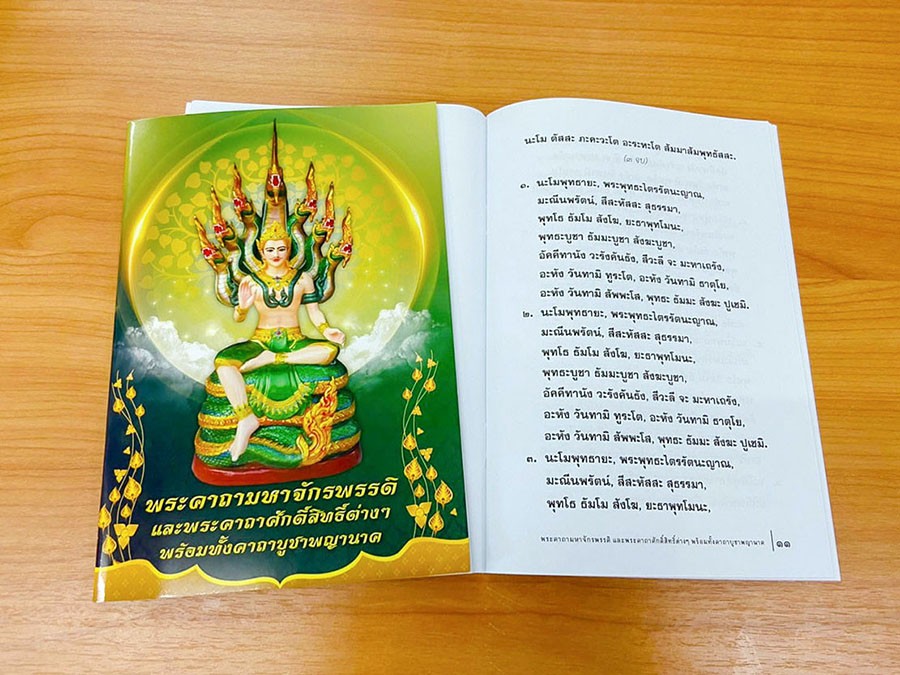 พระคาถามหาจักรพรรดิ
และพระคาถาศักดิ์สิทธิ์ต่างๆ
พร้อมทั้งคาถาบูชาพญานาค
นะโม ตัสสะ ภะคะวะโต อะระหะโต สัมมาสัมพุทธัสสะ.
(๓ จบ)
๑. นะโมพุทธายะ, พระพุทธะไตรรัตนะญาณ,
มะณีนพรัตน์, สีสะหัสสะ สุธรรมา,
พุทโธ ธัมโม สังโฆ, ยะธาพุทโมนะ,
พุทธะบูชา ธัมมะบูชา สังฆะบูชา,
อัคคีทานัง วะรังคันธัง, สีวะลี จะ มะหาเถรัง,
อะหัง วันทามิ ทูระโต, อะหัง วันทามิ ธาตุโย,
อะหัง วันทามิ สัพพะโส, พุทธะ ธัมมะ สังฆะ ปูเชมิ.
๒. นะโมพุทธายะ, พระพุทธะไตรรัตนะญาณ,
มะณีนพรัตน์, สีสะหัสสะ สุธรรมา,
พุทโธ ธัมโม สังโฆ, ยะธาพุทโมนะ,
พุทธะบูชา ธัมมะบูชา สังฆะบูชา,
อัคคีทานัง วะรังคันธัง, สีวะลี จะ มะหาเถรัง,
อะหัง วันทามิ ทูระโต, อะหัง วันทามิ ธาตุโย,
อะหัง วันทามิ สัพพะโส, พุทธะ ธัมมะ สังฆะ ปูเชมิ.
๓. นะโมพุทธายะ, พระพุทธะไตรรัตนะญาณ,
มะณีนพรัตน์, สีสะหัสสะ สุธรรมา,
พุทโธ ธัมโม สังโฆ, ยะธาพุทโมนะ,
พระคาถามหาจักรพรรดิ และพระคาถาศักดิ์สิทธิ์ต่างๆ พร้อมทั้งคาถาบูชาพญานาค ๑๑